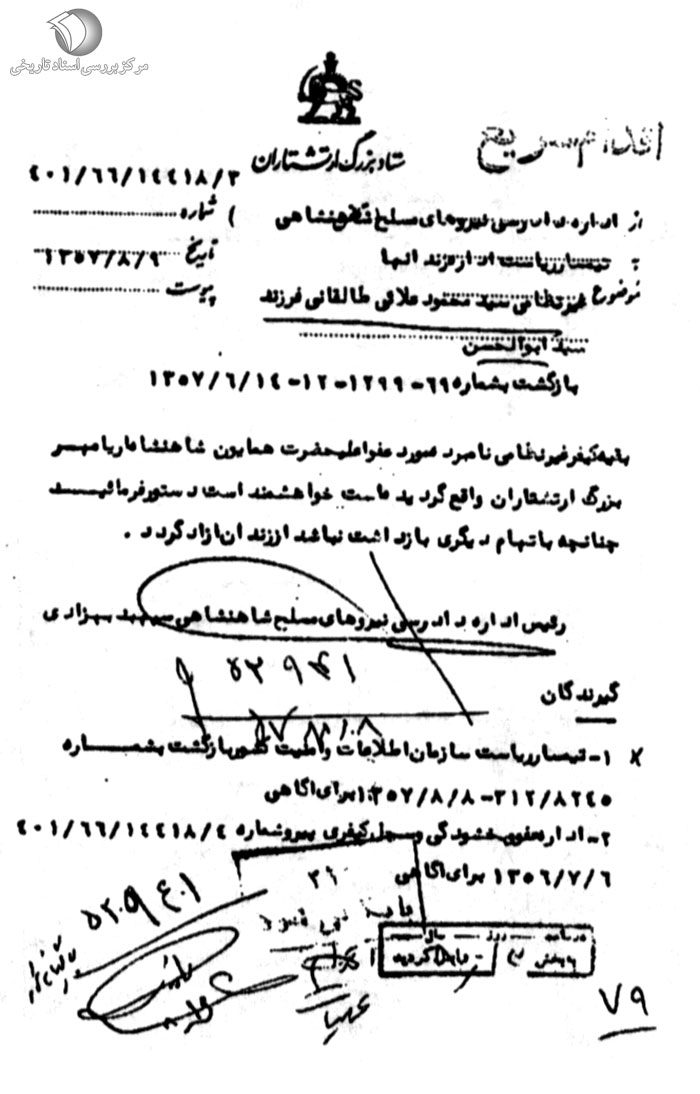 مرکز بررسی اسناد تاریخی
ستاد بزرگ ارتشتاران
اقدام سریع
۴۰۱/۶۶/۱۴۴۱۸/۳
شماره
از اداره دادرسی نیروهای مسلح شاهنشاهی
تاریخ ۱۳۵۷/۸/۹
به تیمسار ریاست اداره زندانها
پیوست
موضوع غیرنظامی سید محمود علائی طالقانی فرزند
سید ابوالحسن
بازگشت بشماره ۶۹-۱۲۹۹-۱۲-۱۳۵۷/۶/۱۴
بقیه کیفر غیرنظامی نامبرد مورد عفو اعلیحضرت همایون شاهنشاه اریامهر
بزرگ ارتشتاران واقع گردیده است خواهشمند است دستور فرمائیـــد
چنانچه باتهام دیگری بازداشت نباشد از زندان ازاد گردد.
رئیس اداره دادرسی نیروهای مسلح شاهنشاهی سپهبد بهزادی
گیرندگان
۱- تیمسار ریاست سازمان اطلاعات و امنیت کشور بازگشت بشمــاره
۳۱۲/۸۲۴۵-۱۳۵۷/۸/۸ برای اگاهی
۲- اداره عفو و بخشودگی و سجل کیفری پیرو شماره ۴۰۱/۶۶/۱۴۴۱۸/۴
۱۳۵۶/۷/۶ برای اگاهی
۳۱
بایگانی شود
۷۹